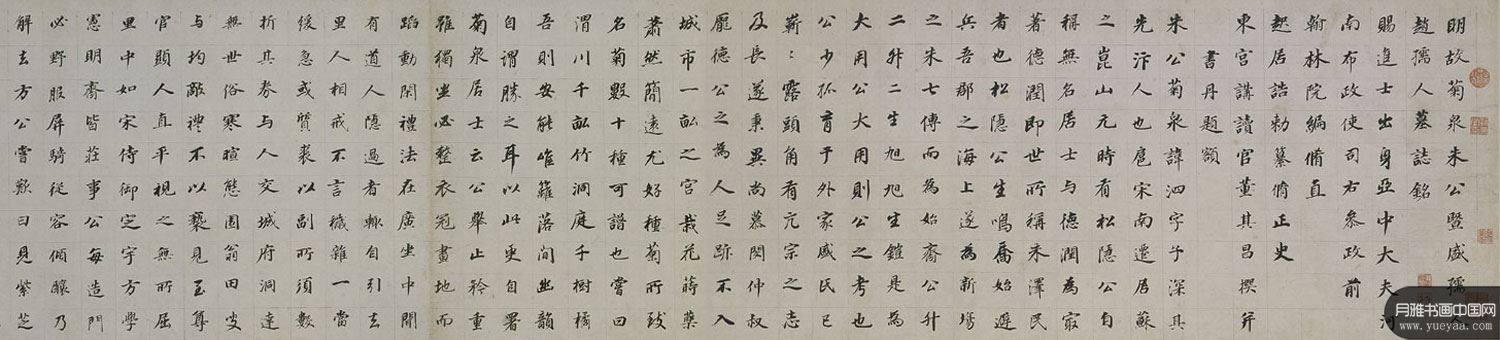 明故菊泉朱公暨盛孺人
趙孺人墓誌銘
賜進士出身亞中大夫河
南布政使司右參政前
翰林院編脩直
起居誥勅纂脩正史
東宮講讀官董其昌撰并
書丹題額
朱公菊泉諱泗字子深其
先汴人也扈宋南遷居蘇
之崑山元時有松隱公自
稱無名居士与德潤為㝡
著德潤即世所稱朱澤民
者也松隱公生鳴喬始避
兵吾郡之海上遂為新場
之朱七傳而為始齋公升
二升二生旭旭生鎧是為
大用公大用則公之考也
公少孤育于外家盛氏已
嶄〻露頭角有亢宗之志
及長遂秉異尚慕閔仲叔
龐德公之為人足跡不入
城市一畝之宮栽花蒔藥
蕭然簡遠尤好種菊所致
名菊數十種可譜也嘗曰
渭川千畝竹洞庭千樹橘
吾則安能唯籬落間幽韻
自謂勝之耳以此更自署
菊泉居士云公舉止矜重
雖獨坐必整衣冠畫地而
蹈動閑禮法在廣坐中聞
有道人隱過者輒自引去
里人相戒不言穢雜一當
緩急或質裘以副所須數
折其券与人交城府洞達
無世俗寒暄態園翁田叟
与均敵禮不以褻見至尊
官顯人直平視之無所屈
里中如宋侍御定宇方學
憲明齋皆莊事公每造門
必野服屏騎從容傾釀乃
解去方公嘗歎曰見紫芝
月雅书画中国网
www.yueyaa.com